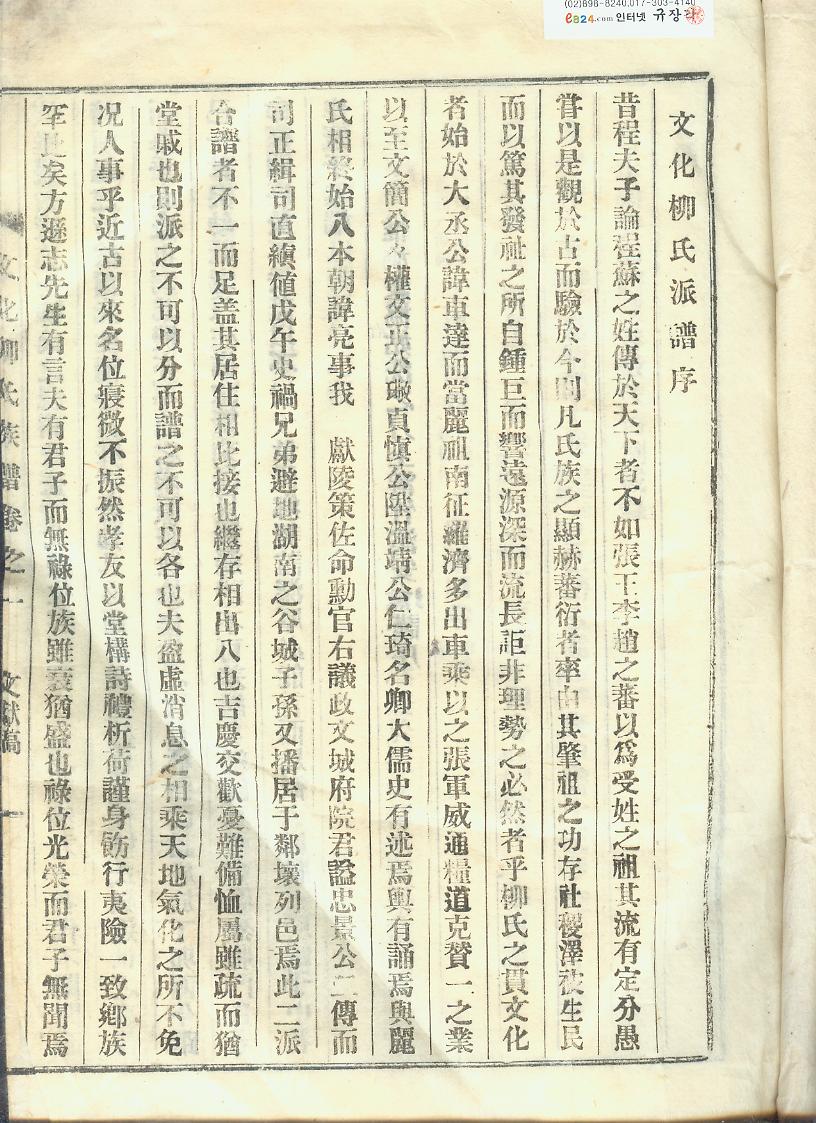 (02)898-8240.017-303-4140
e824.com 인터넷 규장각
文化柳氏派譜序
昔程夫子論程蘇之姓傳於天下者不如張王李趙之蕃以爲受姓之祖其流有定分愚
嘗以是觀於古而驗於今則凡氏族之顯赫蕃衍者率由其肇祖之功存社稷澤被生民
而以篤其發祉之所自鍾巨而響遠源深而流長詎非理勢之必然者乎柳氏之貫文化
者始於大丞公諱車達而當麗祖南征羅濟多出車乘以之張軍威通糧道克贊一之業
以至文簡公々權文正公璥貞愼公陞溫靖公仁琦名卿大儒史有述焉輿有誦焉與麗
氏相終始入本朝諱亮事我 獻陵策佐命勳官右議政文城府院君謚忠景公二傳而
司正緝司直縝値戊午史禍兄弟避地湖南之谷城子孫又播居于鄰壤列邑焉此二派
合譜者不一而足盖其居住相比接也繼存相出入也吉慶交歡憂難備恤屬雖疏而猶
堂戚也則派之不可以分而譜之不可以各也夫盈虛消息之相乘天地氣化之所不免
况人事乎近古以來名位寢微不振然孝友以堂構詩禮析荷謹身飭行夷險一致鄉族
罕比矣方遜志先生有言夫有君子而無祿位族雖衰猶盛也祿位光榮而君子無聞焉
文化柳氏族譜卷之一 文獻稿 一